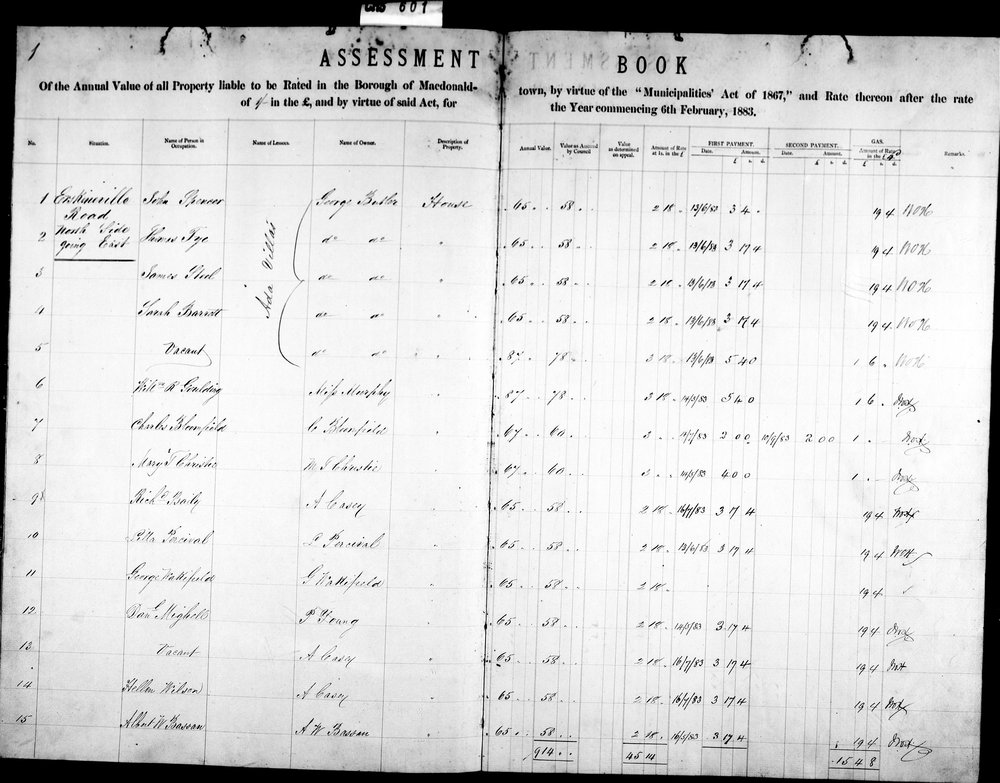 601
1
ASSESSMENT BOOK
Of the Annual Value of all Property liable to be Rated in the Borough of Macdonald-town, by virtue of the "Municipalities' Act of 1867," and Rate thereon after the rate
of 1/- in the £, and by virtue of said Act, for the Year commencing 6th February, 1883.
No. Situation. Name of Person in Occupation. Name of Lessees. Name of Owner. Description of Property. Annual Value. Value as Assessed by Council Value as determined on appeal. Amount of Rate at 1s. in the £ FIRST PAYMENT. Date. Amount. £ s d SECOND PAYMENT. Date. Amount. £ s d GAS. Amount of Rate in the £ £ s d Remarks.
1 Erskineville Road John Spencer Ada Villas George Butler House 65 58 2 18 13/6/83 3 4 19 4
2 North Side going East Thomas Tye do do " 65 58 2 18 13/6/83 3 17 4 19 4
3 James Steel do do " 65 58 2 18 13/6/83 3 17 4 19 4
4 Sarah Barrott do do " 65 58 2 18 13/6/83 3 17 4 19 4
5 Vacant do do " 87 78 3 18 13/6/83 5 4 0 1 6
6 Willm R Goulding Miss Murphy " 87 78 3 18 14/5/83 5 4 0 1 6
7 Charles Bloomfield C Bloomfield " 67 60 3 2 0 0 10/9/83 2 0 0 1
8 Mary T Christie M T Christie " 67 60 3 14/5/83 4 0 0 1
9 Richd Baily A Casey " 65 58 2 18 16/7/83 3 17 4 19 4
10 Peter Percival P Percival " 65 58 2 18 13/6/83 3 17 4 19 4
11 George Wakefield G Wakefield " 65 58 2 18 19 4
12 Danl Mighell P Young " 65 58 2 18 14/5/83 3 17 4 19 4
13 Vacant A Casey " 65 58 2 18 16/7/83 3 17 4 19 4
14 Hellen Wilson A Casey " 65 58 2 18 16/7/83 3 17 4 19 4
15 Albert W Bassan A W Bassan " 65 58 2 18 3 17 4 19 4
914 45 14 15 4 8